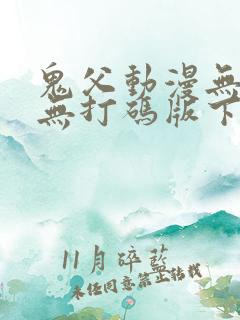 鬼父動漫無
無打碼版下
11月碎藍
未經同意禁止轉載